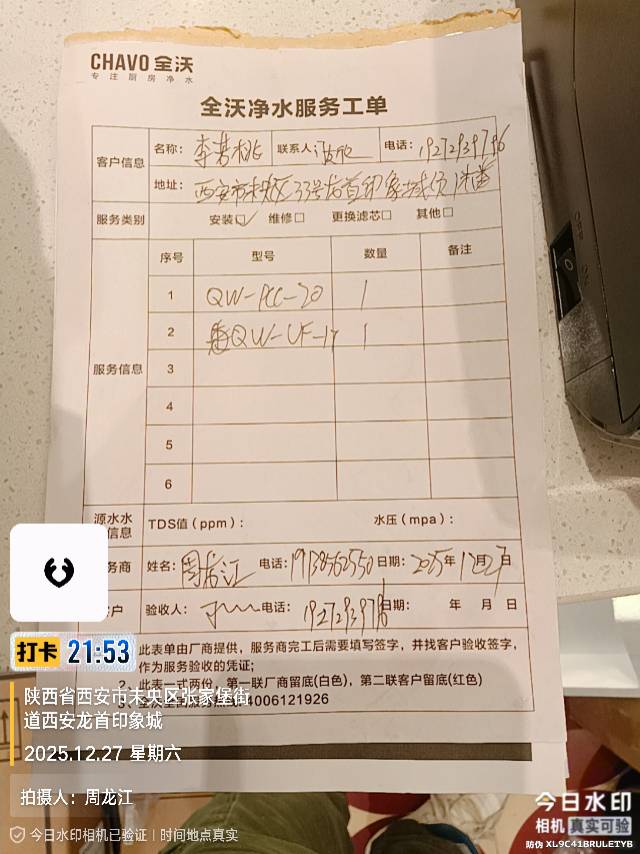 CHAVO 全沃
专注厨房净水
全沃净水服务工单
客户信息 名称： 联系人： 电话：19272939796
地址：西安市未央区33号龙首印象城负1楼
服务类别 安装☑ 维修□ 更换滤芯□ 其他□
服务信息 序号 型号 数量 备注
1 QW-PCC-20 1
2 QW-UF-1T 1
3
4
5
6
源水水 信息 TDS值（ppm）： 水压（mpa）：
务商 姓名：周龙江 电话：19138562550 日期：2025年12月27日
客户 验收人： 电话： 日期： 年 月 日
此表单由厂商提供，服务商完工后需要填写签字，并找客户验收签字，
作为服务验收的凭证；
2、此表一式两份，第一联厂商留底(白色)，第二联客户留底(红色)
4006121926
OFF
打卡 21:53
陕西省西安市未央区张家堡街
道西安龙首印象城
2025.12.27 星期六
拍摄人：周龙江
今日水印相机已验证 | 时间地点真实
今日水印
相机 真实可验
防伪 XL9C41BRULETYB